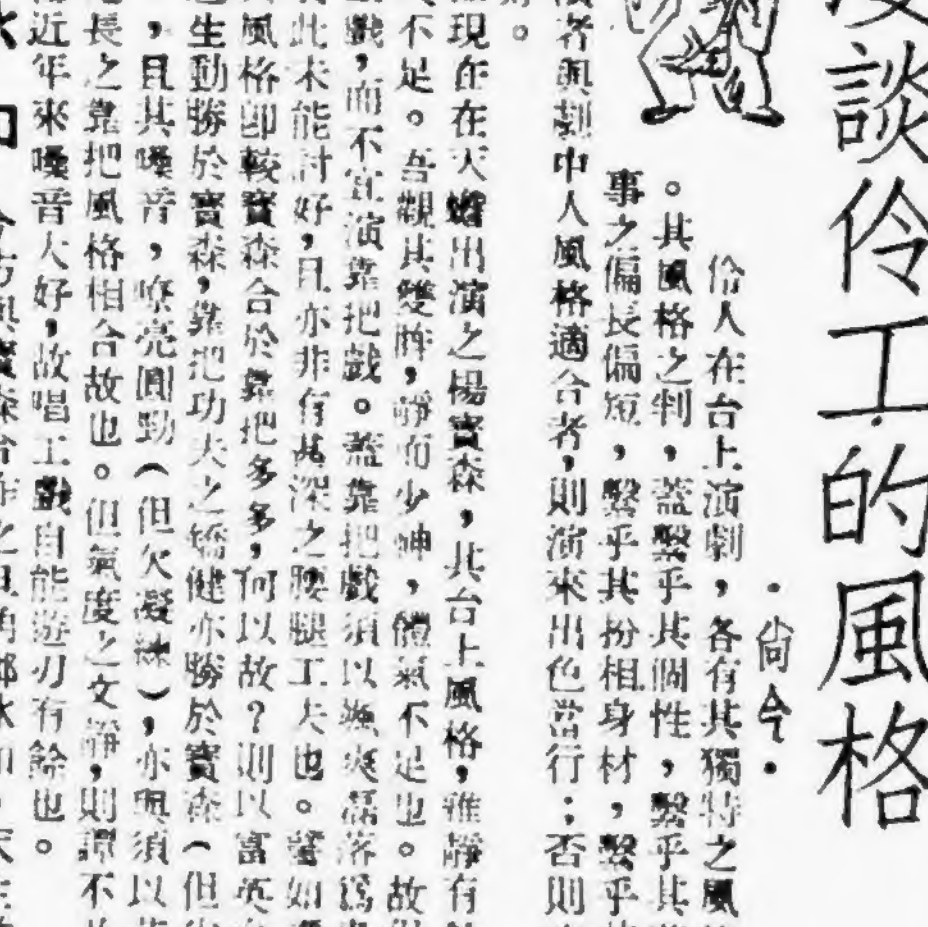 談伶工的風格
・尙今・
伶人在台上演劇，各有其獨特之風
。其風格之判，蓋繫乎其個性，繫乎其
事之偏長偏短，繫乎其扮相身材，繫乎
者與劇中人風格適合者，則演來出色當行；否則
。
現在在天蟾出演之楊寶森，其台上風格，雅靜有
不足。吾觀其雙眸，靜而少神，體氣不足也。故
戲，而不宜演靠把戲。蓋靠把戲須以颯爽磊落爲
此未能討好，且亦非有甚深之腰腿工夫也。譬如
風格卽較寶森合於靠把多多，何以故？則以富英
生動勝於寶森，靠把功夫之矯健亦勝於寶森（但
，且其嗓音，嘹亮圓勁（但欠凝練），亦與須以
長之靠把風格相合故也。但氣度之文靜，則譚不
近年來嗓音大好，故唱工戲自能遊刃有餘也。